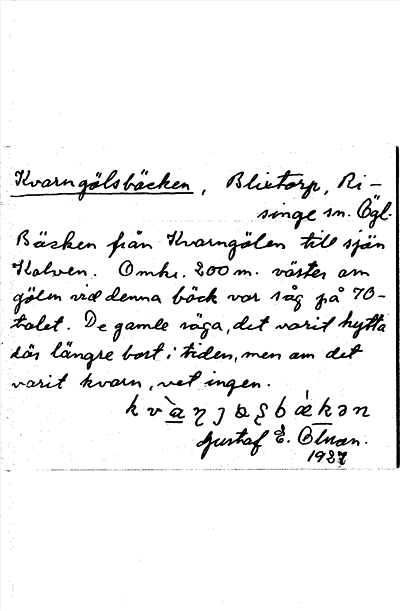 Kvarngölsbäcken, Blixtorp, Ri-
singe sn. Ögl.
Bäcken från Kvarngölen till sjön
Kalven. Omkr. 200 m. väster om
gölen vid denna bäck var såg på 70-
talet. De gamle säga, det varit hytta
där längre bort i tiden, men om det
varit kvarn, vet ingen.
Gustaf E.
1927